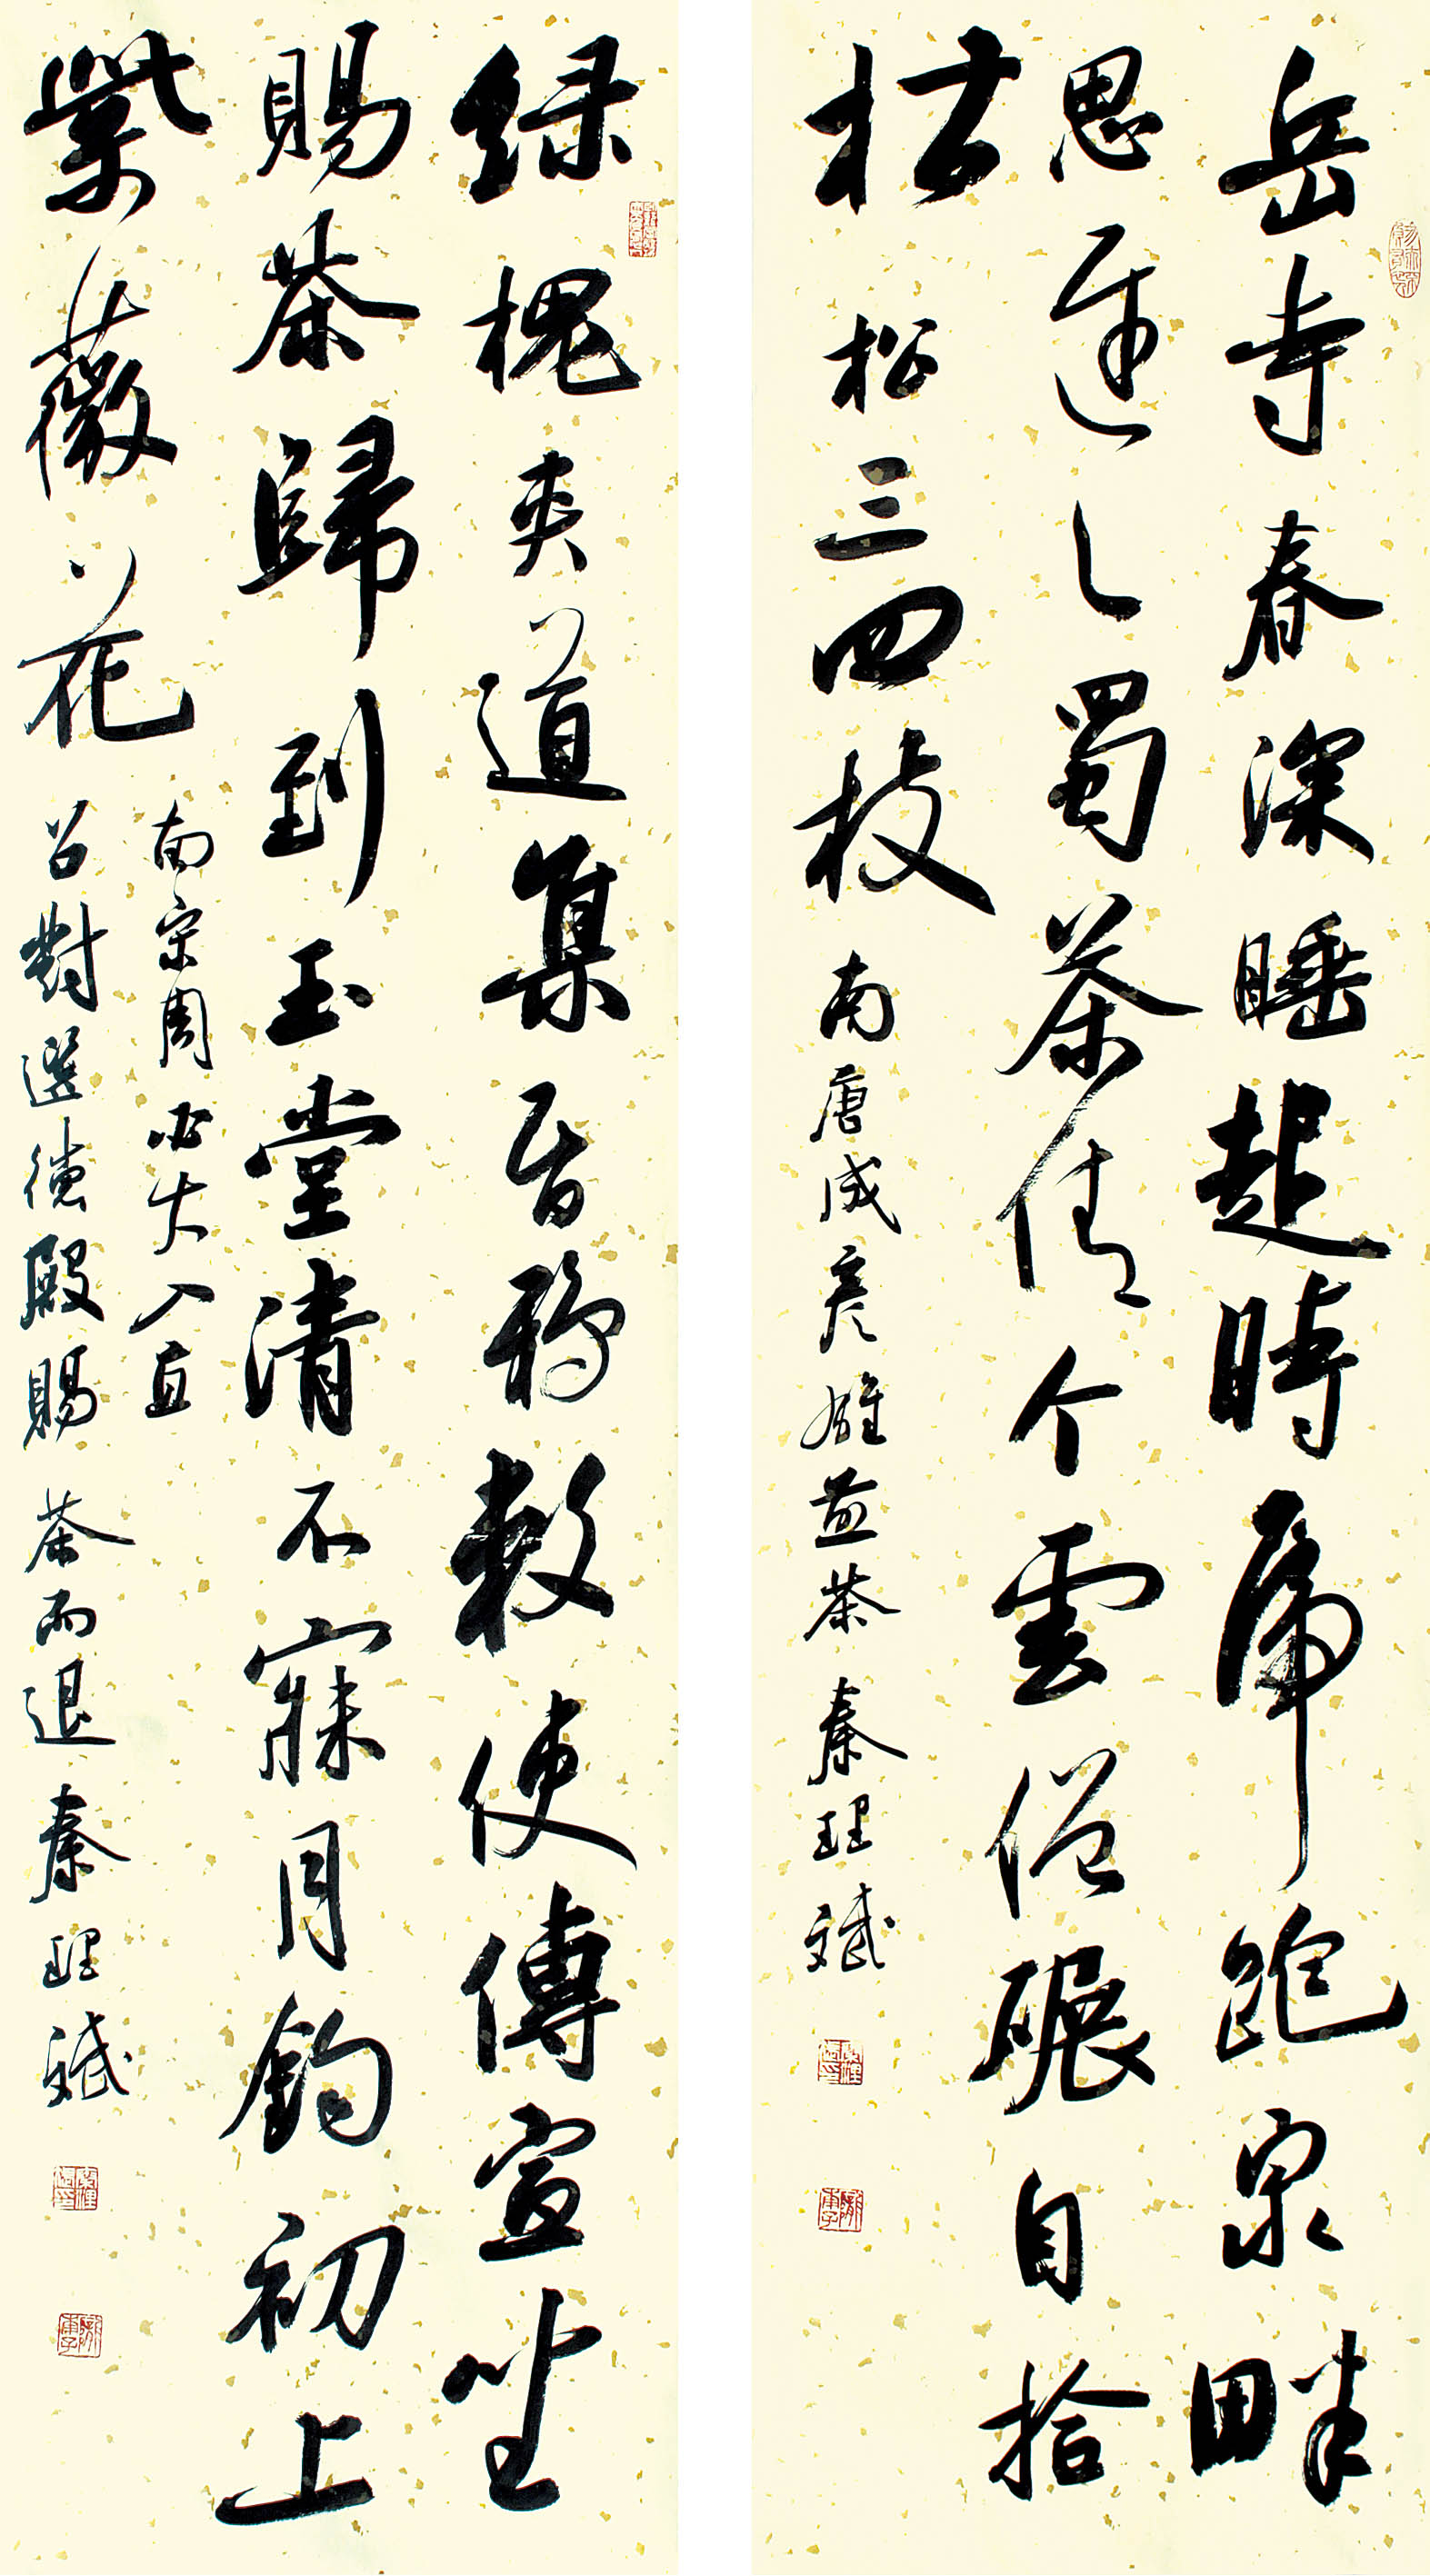 岳寺春深睡起時虎跑泉畔
思遲々蜀茶倩个雲僧碾自拾
枯松三四枝 南唐成彥雄煎茶 秦理斌
緑槐夾道集昏鴉敕使傳宣坐
賜茶歸到玉堂清不寐月鉤初上
紫薇花 南宋周必大入直
召對選德殿賜茶而退 秦理斌